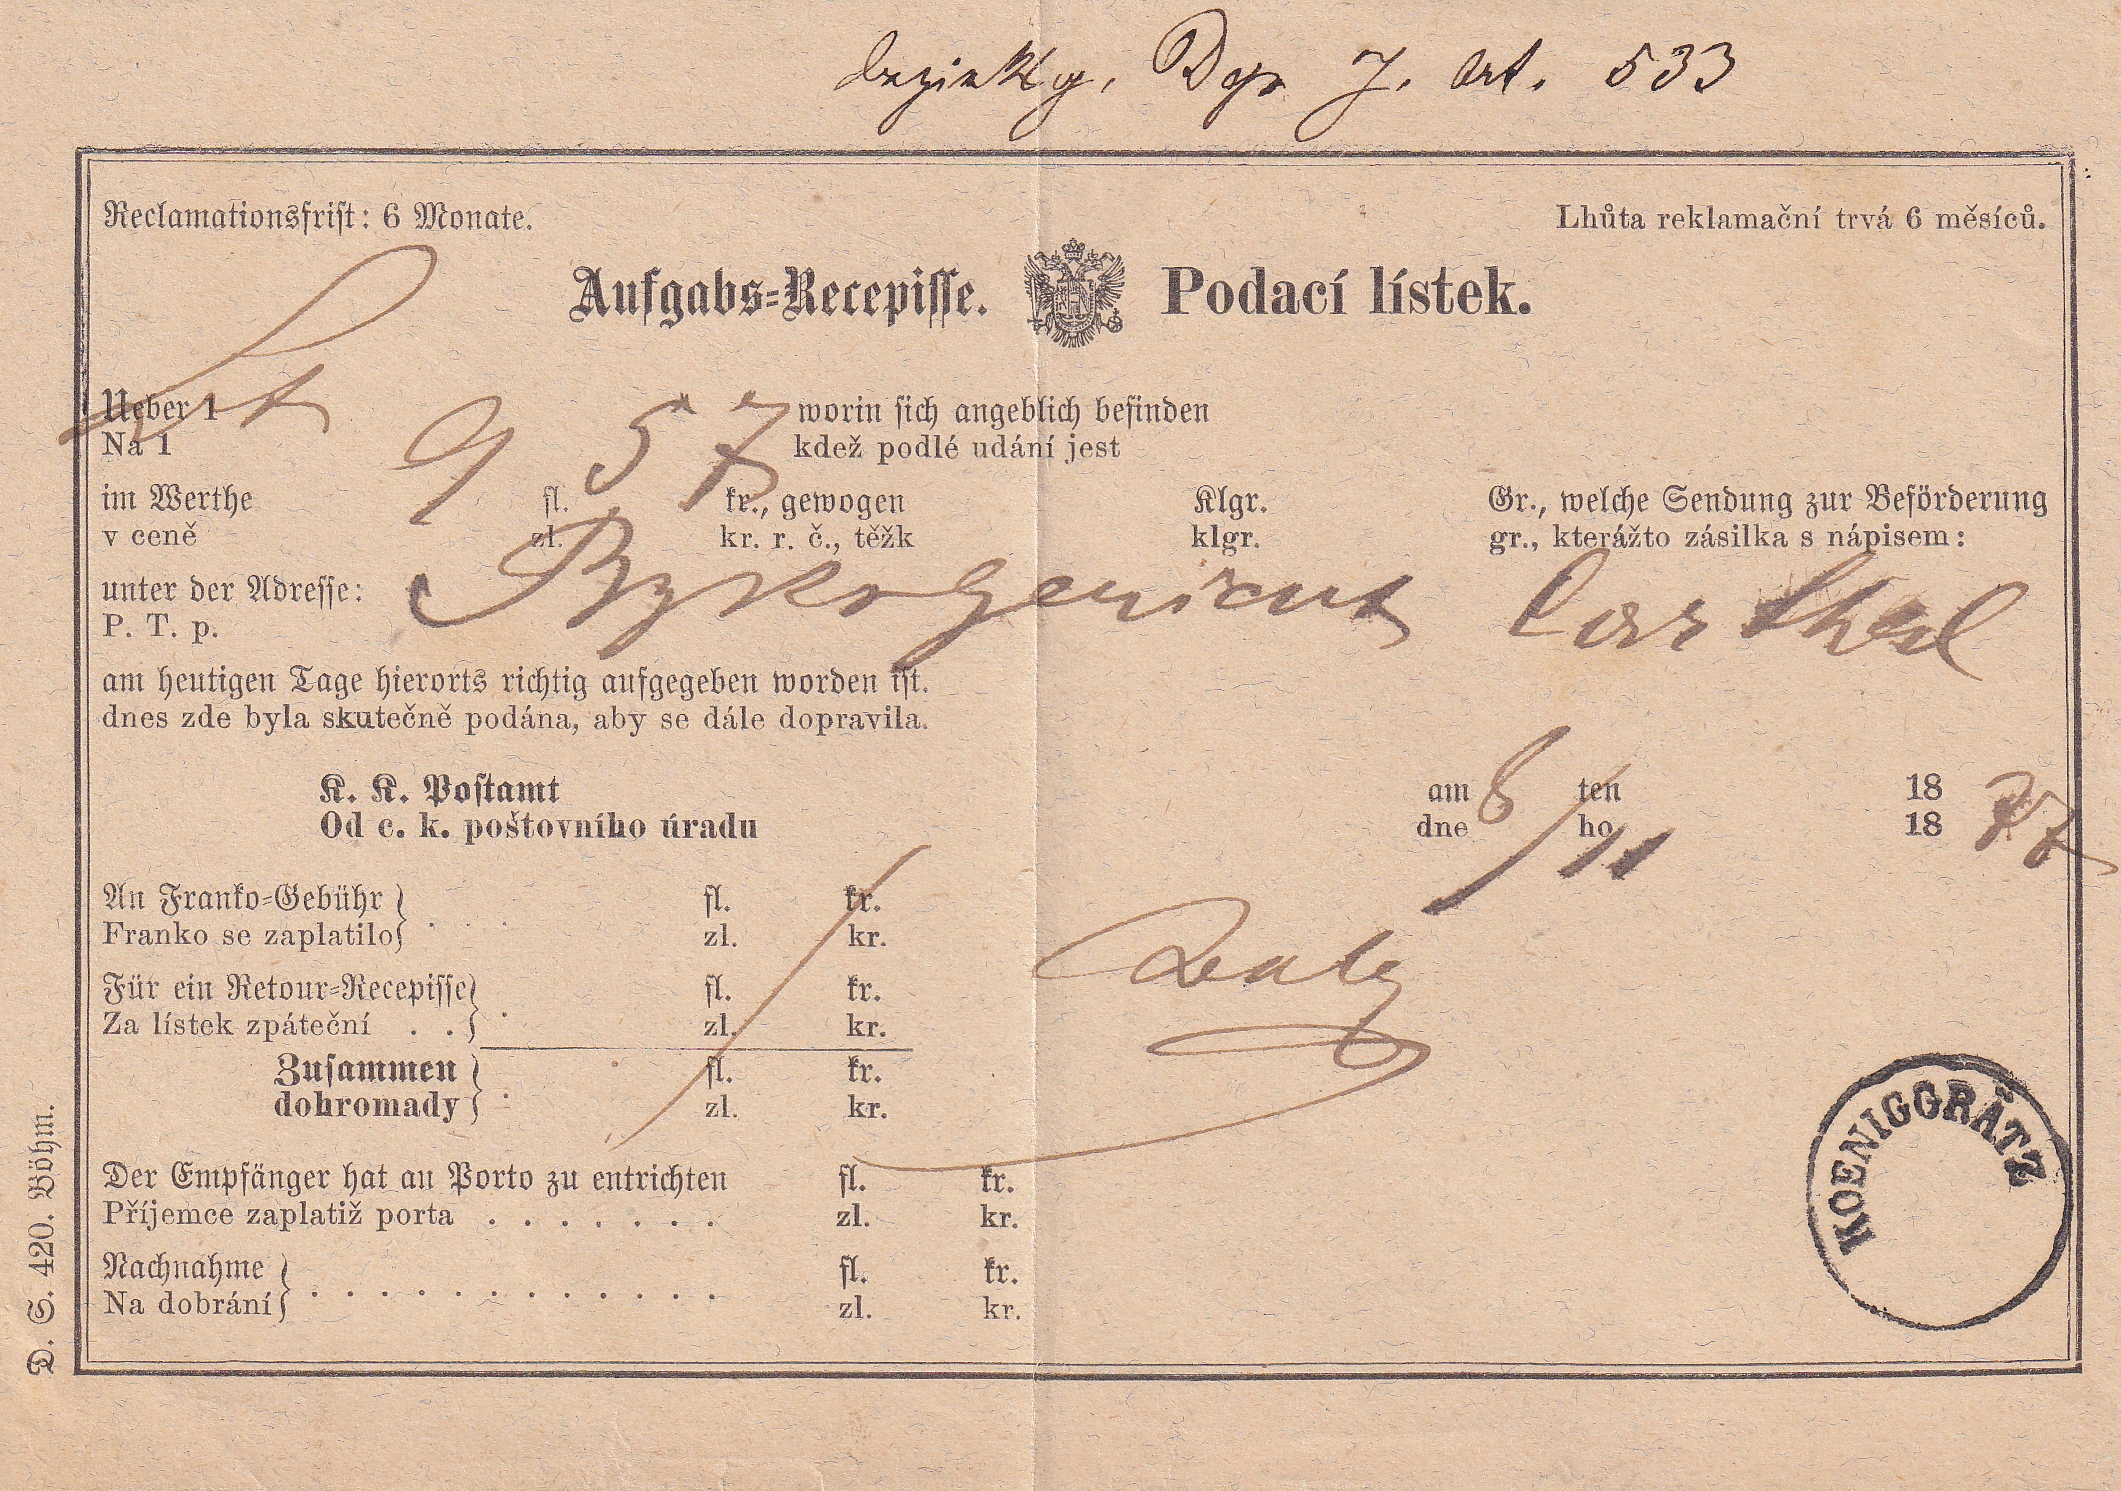 J. Art. 533
Reclamationsfrist: 6 Monate.
Lhůta reklamační trvá 6 měsíců.
Aufgabs-Recepisse. Podací lístek.
Ueber 1
Na 1
9 57
worin sich angeblich befinden
kdež podlé udání jest
im Werthe fl. kr., gewogen Klgr. Gr., welche Sendung zur Beförderung
v ceně zl. kr. r. č., těžk klgr. gr., kterážto zásilka s nápisem:
unter der Adresse:
P. T. p.
am heutigen Tage hierorts richtig aufgegeben worden ist.
dnes zde byla skutečně podána, aby se dále dopravila.
K. K. Postamt am 8/11 ten 18 77
Od c. k. poštovního úradu dne ho 18
An Franko-Gebühr fl. kr.
Franko se zaplatilo zl. kr.
Für ein Retour-Recepisse fl. kr.
Za lístek zpáteční . . zl. kr.
Zusammen fl. kr.
dohromady zl. kr.
Der Empfänger hat an Porto zu entrichten fl. kr.
Příjemce zaplatiž porta . . . . . . . zl. kr.
Nachnahme fl. kr.
Na dobrání zl. kr.
KOENIGGRÄTZ
D. S. 420. Böhm.